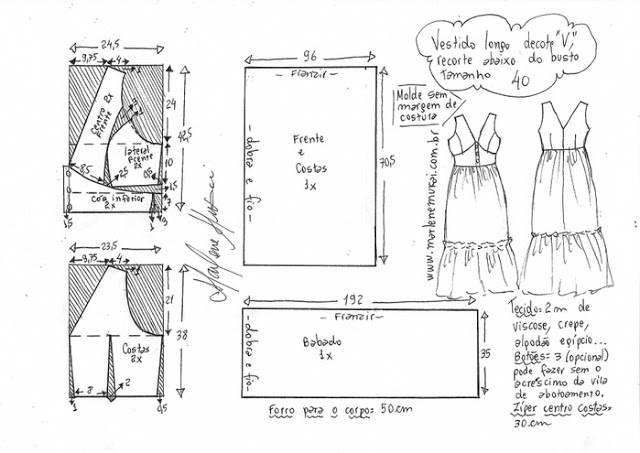 Vestido longo decote "V",
recorte abaixo do busto
Tamanho 40
Molde sem
margem de
costura
www.marlenemukai.com.br
24,5
9,75
4
1
Centro 2x
frente
24
42,5
lateral
Frente
2x
10
8,5
2,5
0,5
1,5
cós inferior
2x
7
1,5
23,5
9,75
4
1
21
38
Costas
2x
8
2
1
0,5
Marlene Mukai
96
- Franzir -
- dobra e fio -
Frente
e
Costas
1x
70,5
192
- Franzir -
- dobra e fio -
Babado
1x
35
Forro para o corpo: 50cm
Tecido: 2m de
viscose, crepe,
algodão egípcio...
Botões: 3 (opcional)
pode fazer sem o
acréscimo da vila
de abotoamento.
Zíper centro costas=
30cm